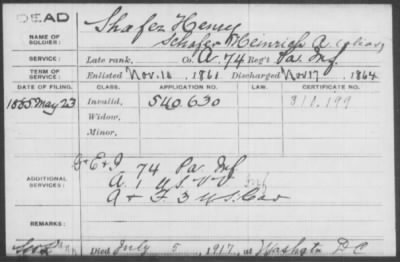 DEAD
NAME OF SOLDIER: Shafer Henry
Schafer Heinrich A. (alias)
SERVICE: Late rank, Co. A. 74 Reg't Pa. Inf.
TERM OF SERVICE: Enlisted Nov. 16 1861 Discharged Nov 17 1864
DATE OF FILING. CLASS. APPLICATION NO. LAW. CERTIFICATE NO.
1885 May 23 Invalid, 540.630 311.199
Widow,
Minor,
ADDITIONAL SERVICES: G+E+I 74 Pa Inf
A. 1 U S V V Inf
A + F 3 U S. Cav
REMARKS:
Died July 5, 1917, at Washgtn D C